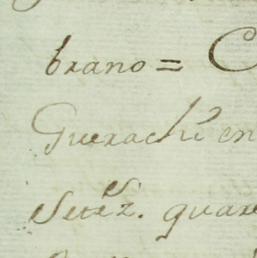 brano = C
Guerachi en
Setez. quare